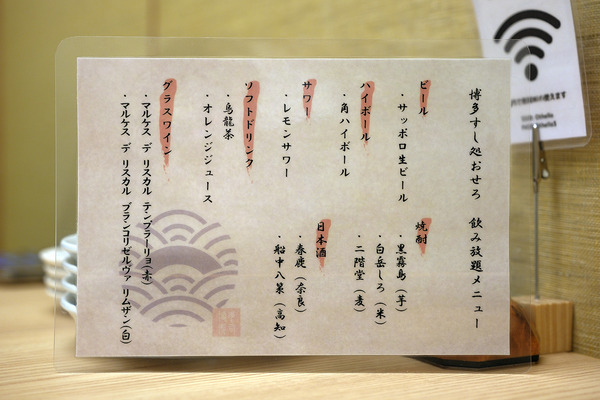 博多すし処おせろ 飲み放題メニュー
ビール
・サッポロ生ビール
ハイボール
・角ハイボール
サワー
・レモンサワー
ソフトドリンク
・烏龍茶
・オレンジジュース
グラスワイン
・マルケス デ リスカル テンプラーリョ(赤)
・マルケス デ リスカル ブランコリゼルヴァ リムザン(白)
焼酎
・黒霧島(芋)
・白岳しろ(米)
・二階堂(麦)
日本酒
・春鹿(奈良)
・船中八策(高知)